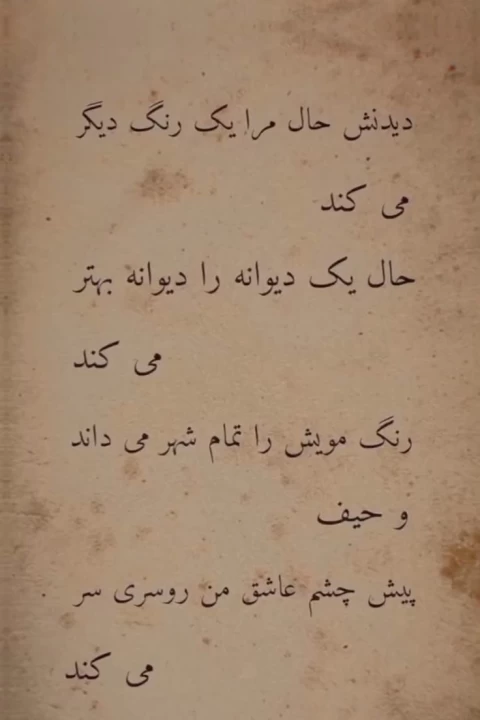 دیدنش حال مرا یک رنگ دیگر
می کند
حال یک دیوانه را دیوانه بهتر
می کند
رنگ مویش را تمام شهر می داند
و حیف
پیش چشم عاشق من روسری سر
می کند